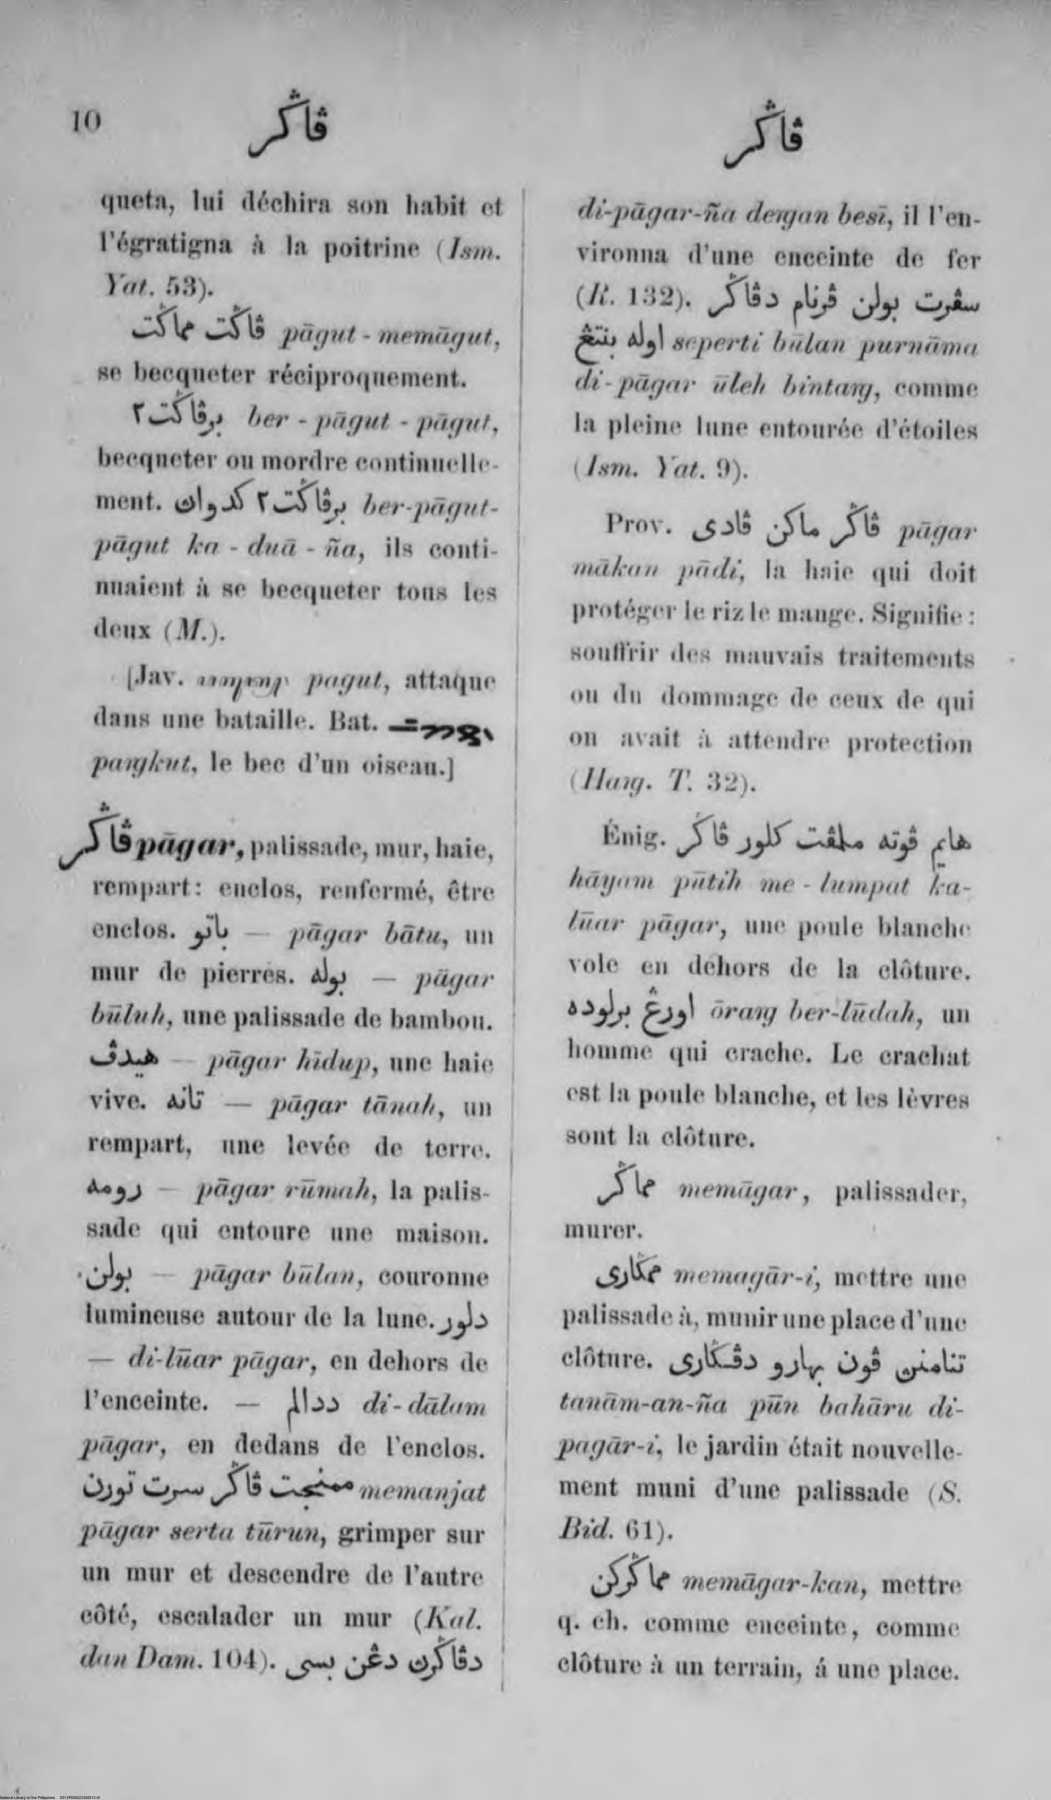 10
ڤاݢر
ڤاݢر
queta, lui déchira son habit et
l'égratigna à la poitrine (Ism.
Yat. 53).
ڤاݢت مماݢت pāgut - memāgut,
se becqueter réciproquement.
برڤاݢت٢ ber - pāgut - pāgut,
becqueter ou mordre continuelle-
ment. برڤاݢت٢ كدوان ber-pāgut-
pāgut ka - duā - ña, ils conti-
nuaient à se becqueter tous les
deux (M.).
[Jav. pagut, attaque
dans une bataille. Bat.
paṅgkut, le bec d'un oiseau.]
ڤاݢر pāgar, palissade, mur, haie,
rempart: enclos, renfermé, être
enclos. باتو — pāgar bātu, un
mur de pierres. بوله — pāgar
būluh, une palissade de bambou.
هيدڤ — pāgar hīdup, une haie
vive. تانه — pāgar tānah, un
rempart, une levée de terre.
رومه — pāgar rūmah, la palis-
sade qui entoure une maison.
بولن — pāgar būlan, couronne
lumineuse autour de la lune. دلور
— di-lūar pāgar, en dehors de
l'enceinte. — ددالم di-dālam
pāgar, en dedans de l'enclos.
ممنجت ڤاݢر سرت تورن memanjat
pāgar serta tūrun, grimper sur
un mur et descendre de l'autre
côté, escalader un mur (Kal.
dan Dam. 104). دڤاݢرن دڠن بسى
di-pāgar-ña deṅgan besī, il l'en-
vironna d'une enceinte de fer
(R. 132). سڤرت بولن ڤرنام دڤاݢر
اوله بنتڠ seperti būlan purnāma
di-pāgar ūleh bintaṅg, comme
la pleine lune entourée d'étoiles
(Ism. Yat. 9).
Prov. ڤاݢر ماكن ڤادى pāgar
mākan pādi, la haie qui doit
protéger le riz le mange. Signifie:
souffrir des mauvais traitements
ou du dommage de ceux de qui
on avait à attendre protection
(Haṅg. T. 32).
Énig. هايم ڤوته ملمڤت كلور ڤاݢر
hāyam pūtih me - lumpat ka-
lūar pāgar, une poule blanche
vole en dehors de la clôture.
اورڠ برلوده ōraṅg ber-lūdah, un
homme qui crache. Le crachat
est la poule blanche, et les lèvres
sont la clôture.
مماݢر memāgar, palissader,
murer.
ممݢارى memagār-i, mettre une
palissade à, munir une place d'une
clôture. تنامنن ڤون بهارو دڤݢارى
tanām-an-ña pūn bahāru di-
pagār-i, le jardin était nouvelle-
ment muni d'une palissade (S.
Bid. 61).
مماݢركن memāgar-kan, mettre
q. ch. comme enceinte, comme
clôture à un terrain, á une place.